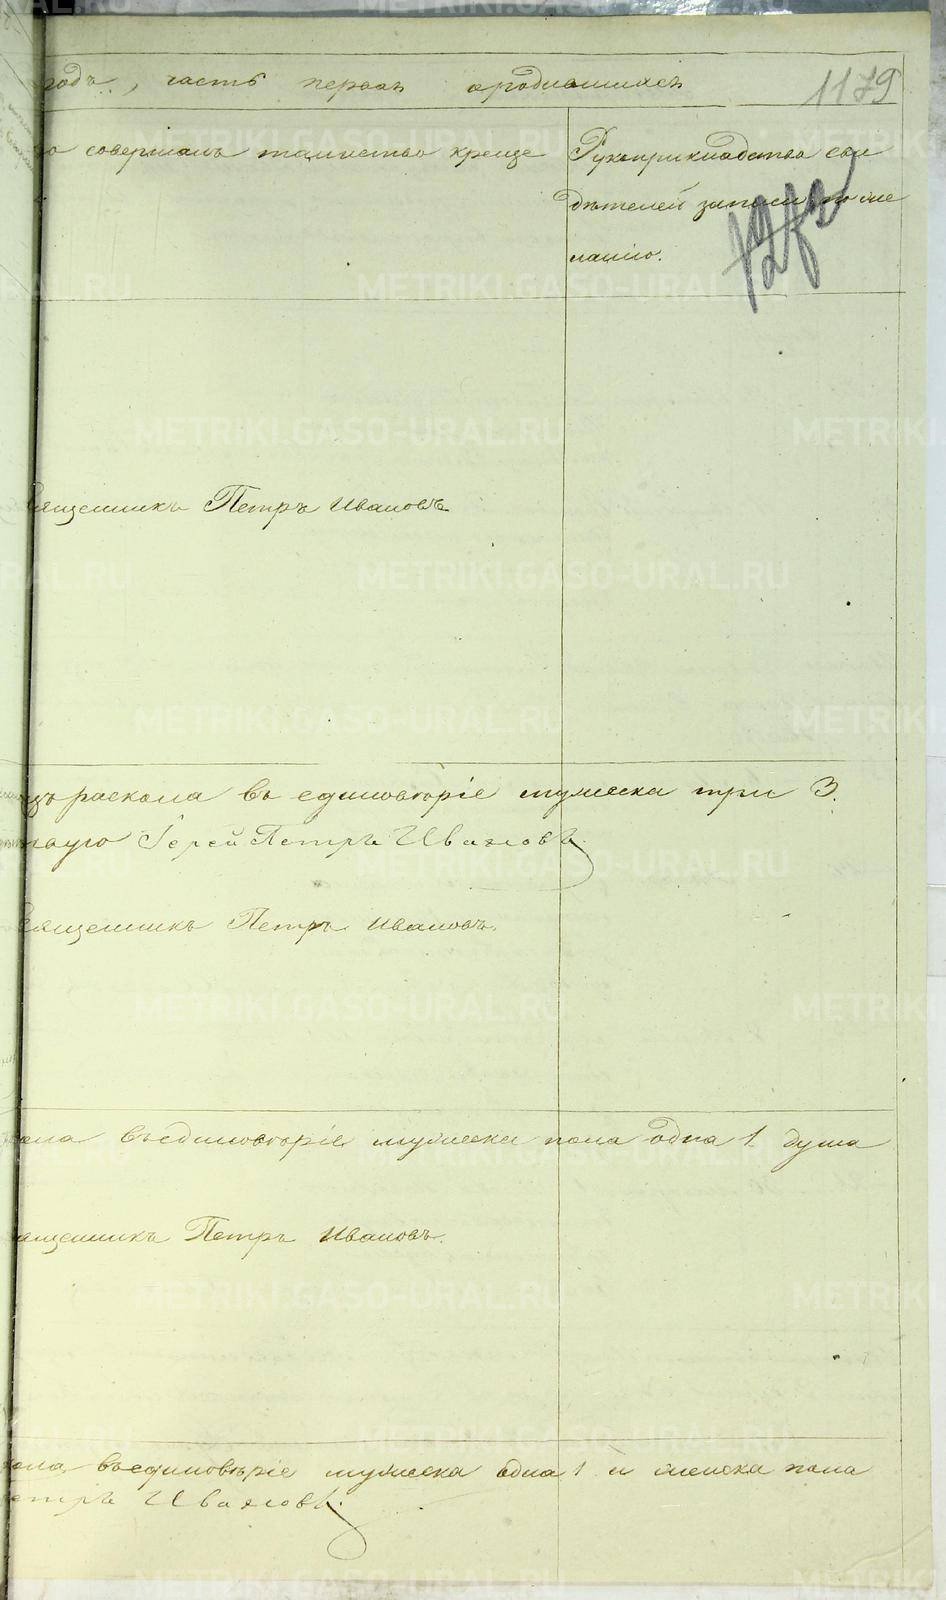 годъ, часть первая о родившихся
1179
совершалъ таинство креще
Рукоприкладство сви
дѣтелей записи по же
ланію.
Священникъ Петръ Ивановъ
изъ раскола въ единовѣріе мужеска три 3.
Іерей Петръ Ивановъ
Священникъ Петръ Ивановъ.
въ единовѣріе мужеска пола одна 1 душа
Священникъ Петръ Ивановъ.
въ единовѣріе мужеска одна 1 и женска пола
Петръ Ивановъ.
METRIKI.GASO-URAL.RU